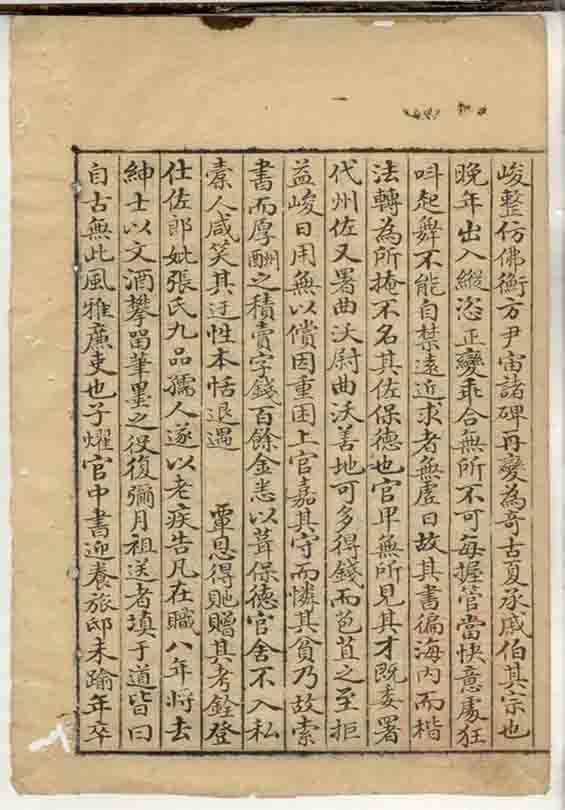 峻整仿佛衡方尹宙諸碑再變為奇古夏承戚伯其宗也
晚年出入縱恣正變乖合無所不可每握管當快意處狂
呌起舞不能自禁遠近求者無虛日故其書徧海內而楷
法轉為所掩不名其佐保德也官甲無所見其才既委署
代州佐又署曲沃尉曲沃善地可多得錢而苞苴之至拒
益峻日用無以償因重困上官嘉其守而憐其貧乃故索
書而厚酬之積賣字錢百餘金悉以葺保德官舍不入私
槖人咸笑其迂性本恬退遇 覃恩得貤贈其考銓登
仕佐郎妣張氏九品孺人遂以老疾告凡在職八年將去
紳士以文酒攀畱筆墨之役復彌月祖送者填于道皆曰
自古無此風雅廉吏也子燿官中書迎養旅邸未踰年卒